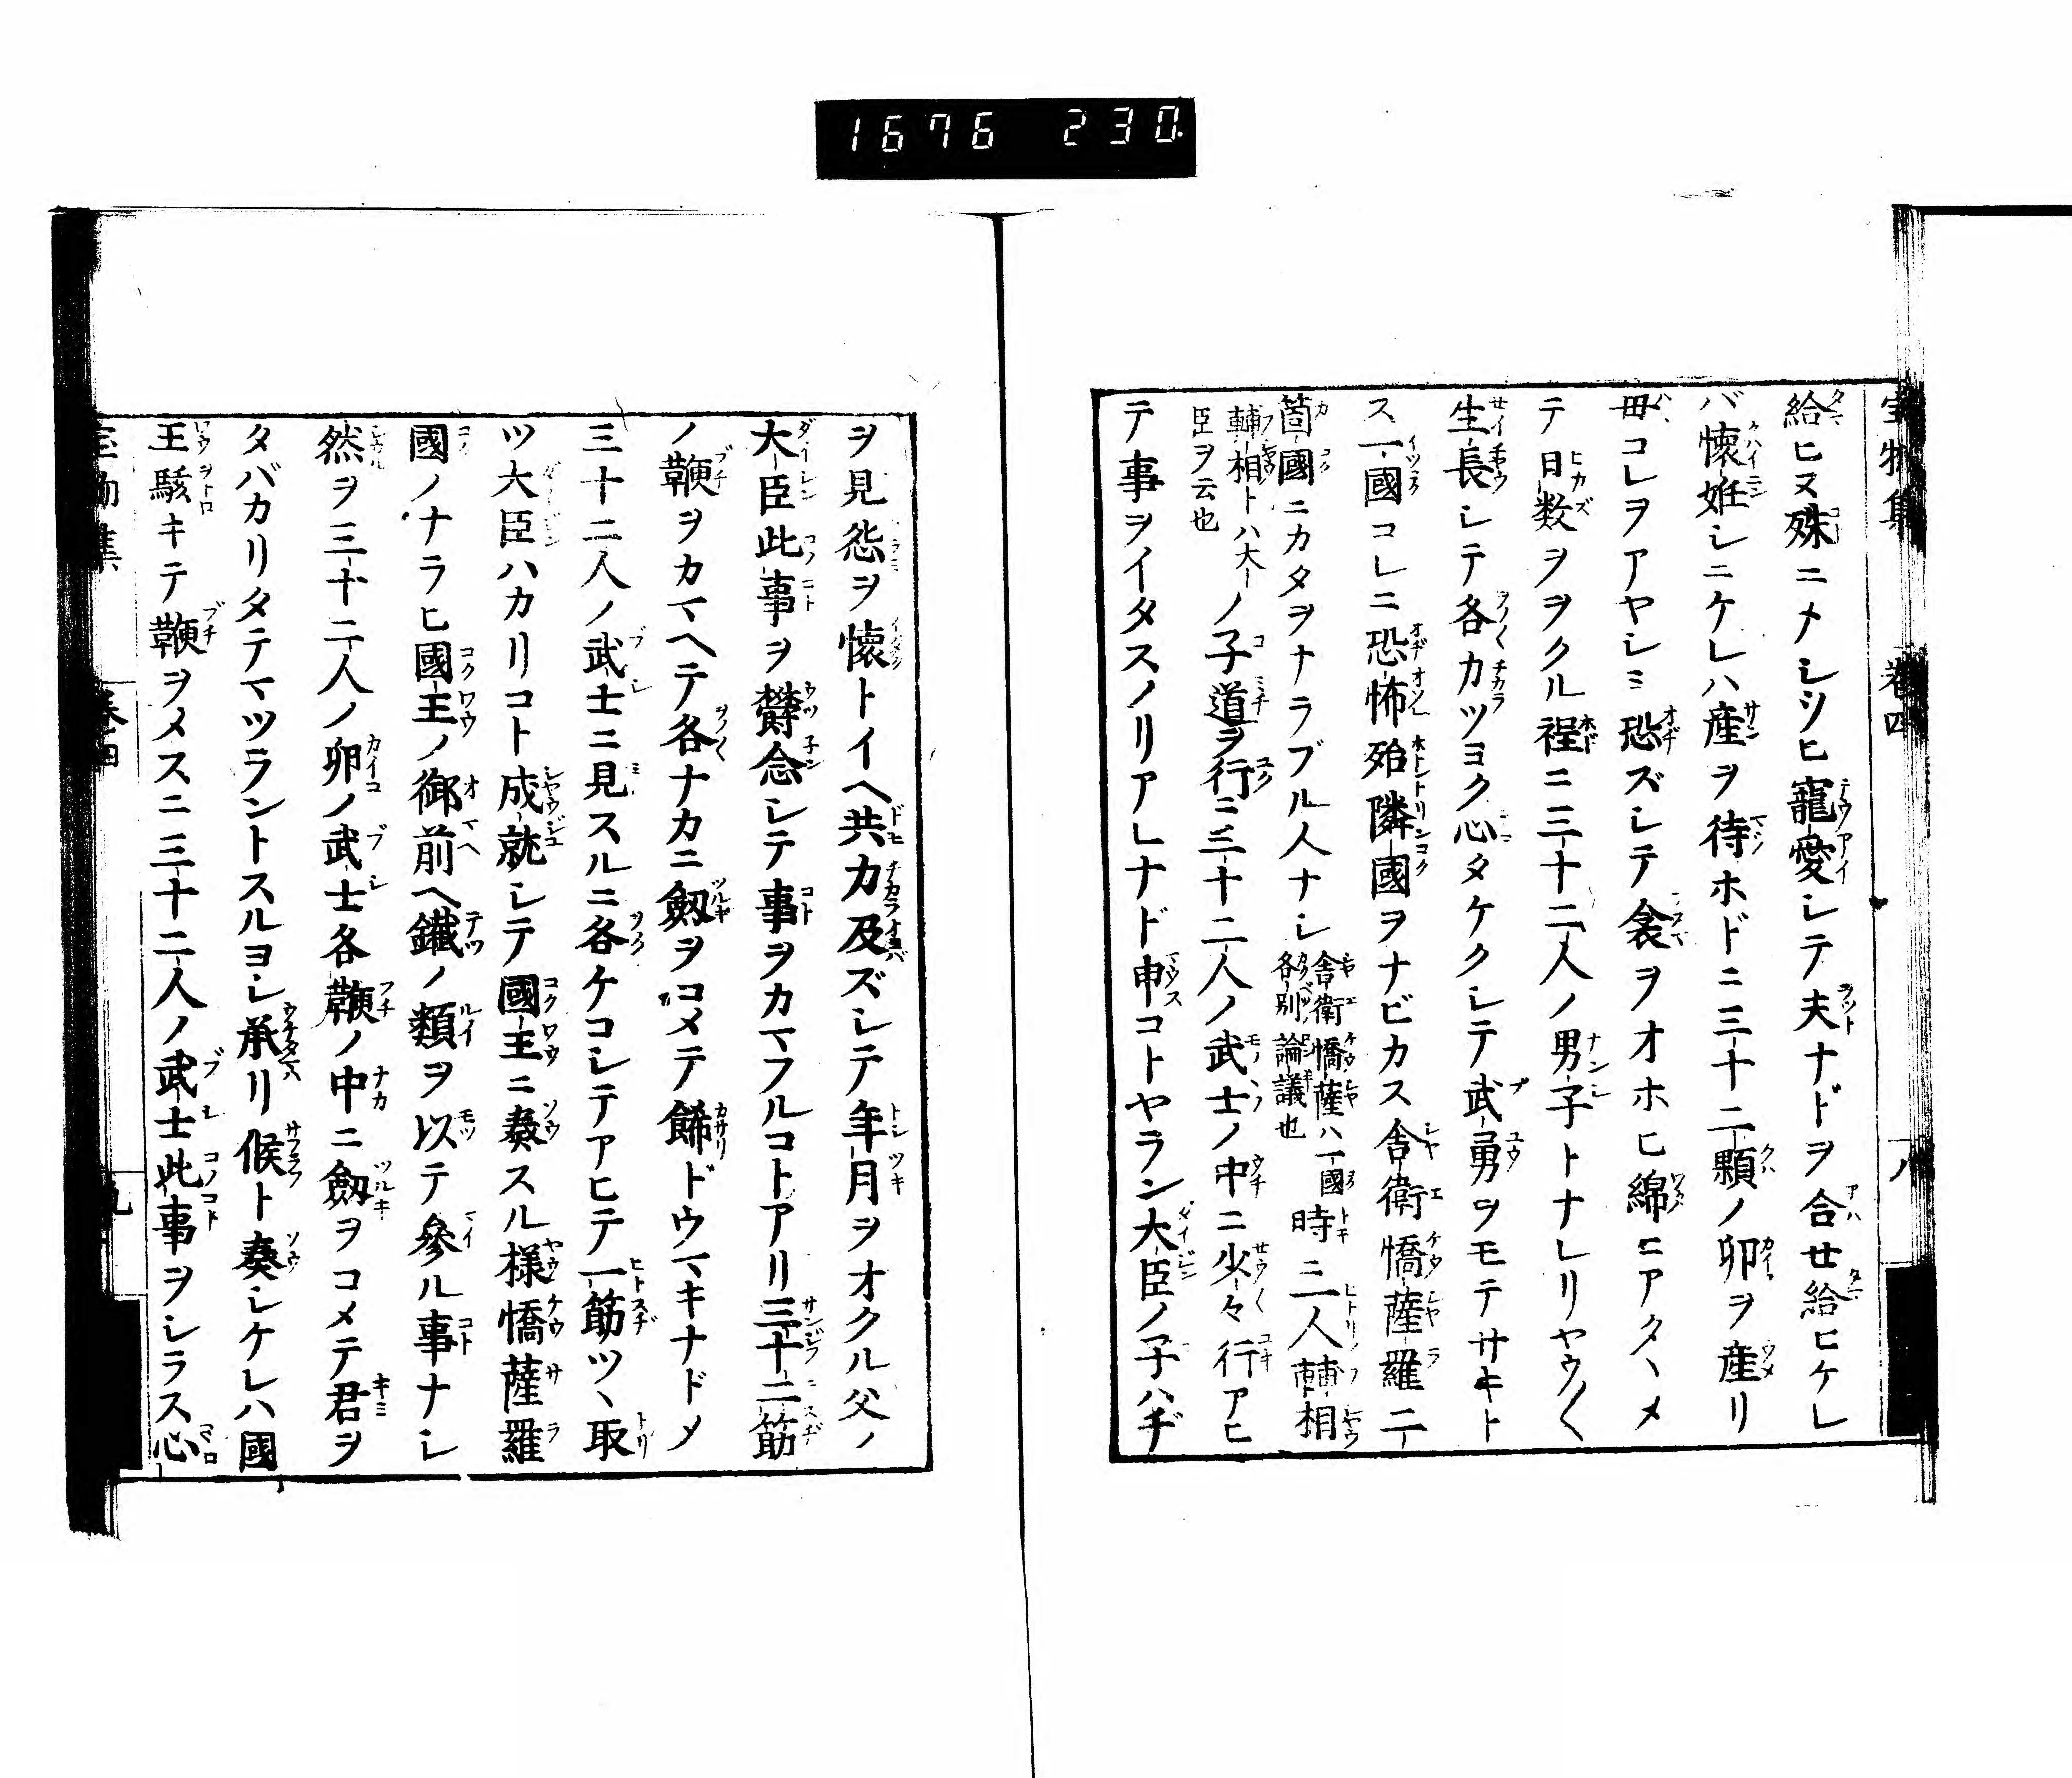 1676 230.
宝物集 巻四 八
給ヒヌ殊ニメシツヒ寵愛シテ夫ナドヲ合せ給ヒケレ
バ懐姙シニケレハ産ヲ待ホドニ三十二顆ノ卵ヲ産リ
毋コレヲアヤシミ恐ズシテ衾ヲオホヒ綿ニアタヽメ
テ日数ヲヲクル程ニ三十二人ノ男子トナレリヤウ〱
生長シテ各カツヨク心タケクシテ武勇ヲモテサキト
ス一國コレニ恐怖殆隣國ヲナビカス舎衛憍薩羅二
箇國ニカタヲナラブル人ナシ舎衛憍薩ハ一國各別論議也時ニ二人輔相
輔相トハ大臣ヲ云也ノ子道ヲ行ニ三十二人ノ武士ノ中ニ少々行アヒ
テ事ヲイタスノリアレナド申コトヤラン大臣ノ子ハヂ
ヲ見怨ヲ懐トイヘ共力及ズシテ年月ヲオクル父ノ
大臣此事ヲ欝念シテ事ヲカマフルコトアリ三十二筋
ノ鞭ヲカマヘテ各ナカニ劔ヲコメテ餙ドウマキナドメ
三十二人ノ武士ニ見スルニ各ケコシテアヒテ一筋ツヽ取
ツ大臣ハカリコト成就シテ國王ニ奏スル様憍薩羅
國ノナラヒ國王ノ御前ヘ鐵ノ類ヲ以テ參ル事ナシ
然ヲ三十二人ノ卵ノ武士各鞭ノ中ニ劔ヲコメテ君ヲ
タバカリタテマツラントスルヨシ承リ候ト奏シケレハ國
王駭キテ鞭ヲメスニ三十二人ノ武士此事ヲシラス心
宝物集 巻四 九